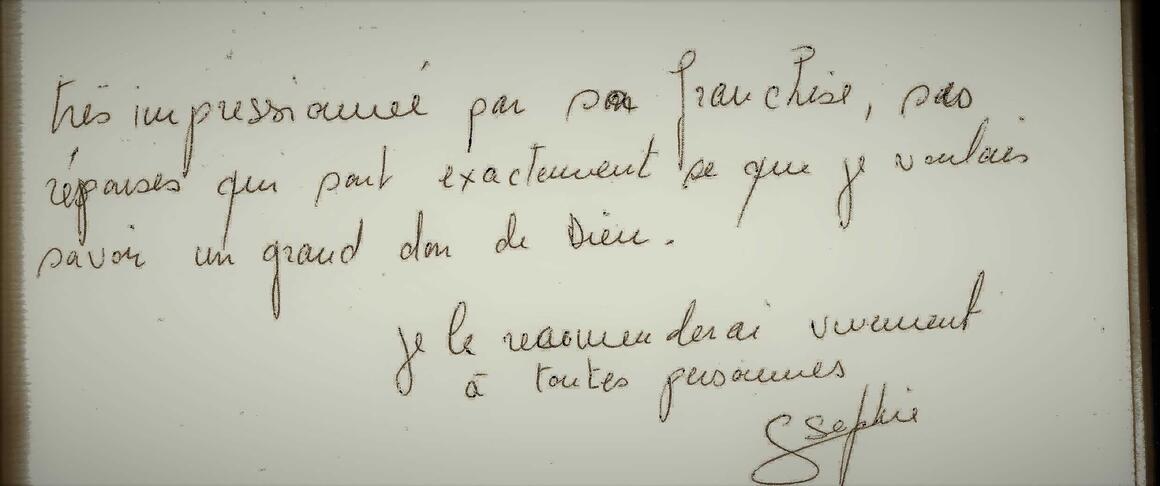 très impressionnée par sa franchise, ses
réponses qui sont exactement se que je voulais
savoir un grand don de Dieu.
je le recommenderai vivement
à toutes personnes
Sophie